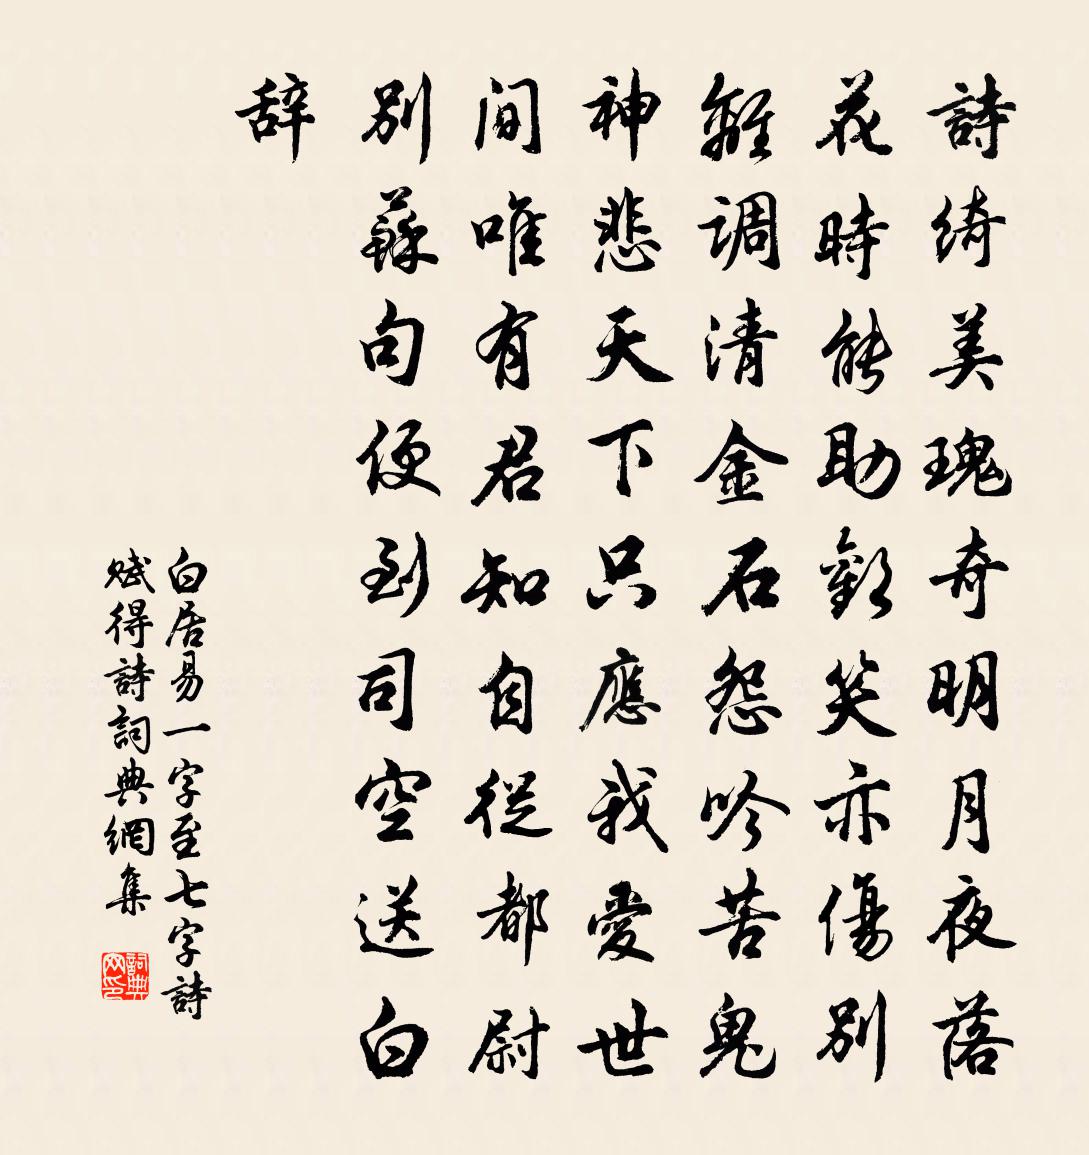 詩綺美瑰奇明月夜落
花時能助歡笑亦傷別
離調清金石怨吟苦鬼
神悲天下只應我愛世
間唯有君知自從都尉
別蘇句便到司空送白
辞
白居易一字至七字詩
赋得詩詞典網集
詞典网印